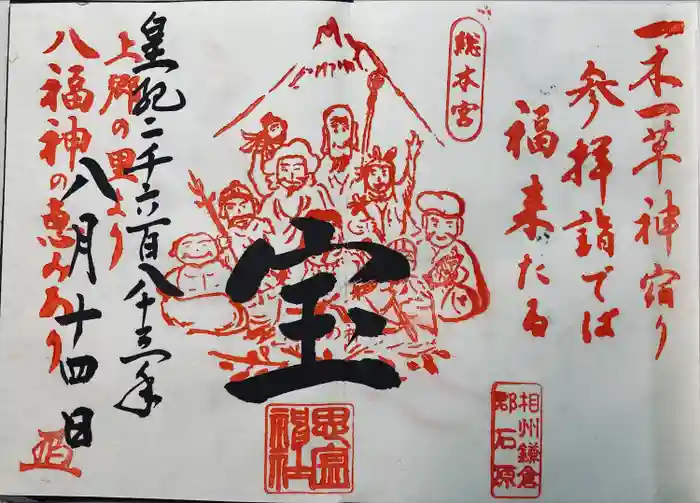 一木一草神宿り
参拝詣では
福来たる
総本宮
相州鎌倉
郡石原
宝
皇紀二千六百八十三年
上郷の里より
八福神の恵みあり
八月十四日